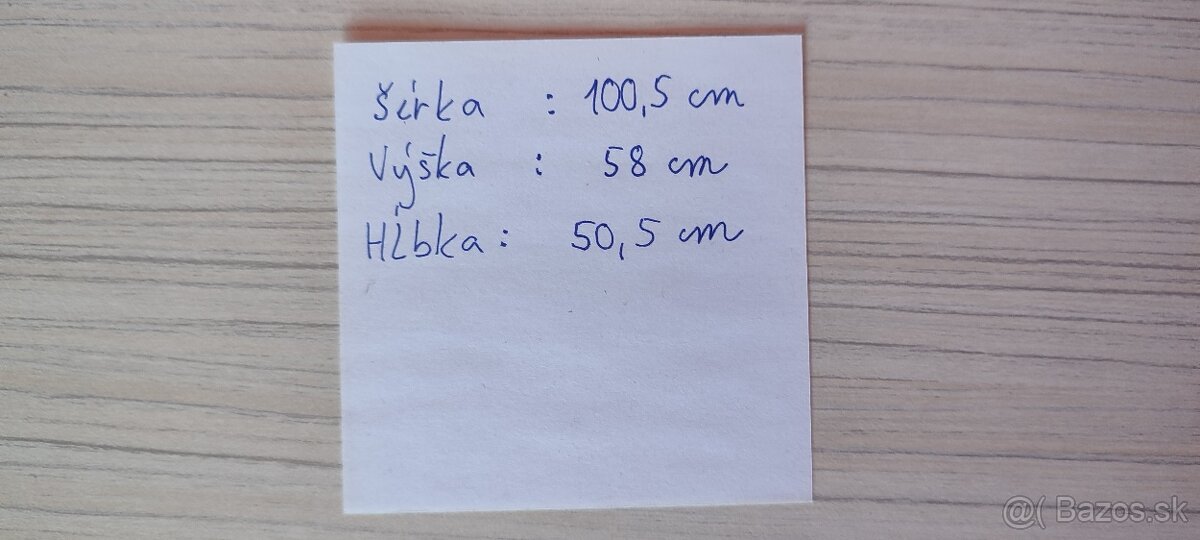 Šírka : 100,5 cm
Výška : 58 cm
Hĺbka : 50,5 cm
@( Bazos.sk